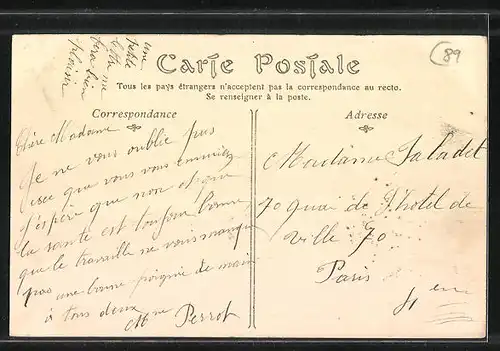 une
petite
lettre me
fera bien
plaisir
Carte Postale
89
Tous les pays étrangers n'acceptent pas la correspondance au recto.
Se renseigner à la poste.
Correspondance
Chère Madame
Je ne vous oublie pas
que vous vous ennuiez
j'espère que non et que
la santé est toujour bonne
que le travaille ne vous manque
pas une bonne poignée de main
à tous deux
Mme Perrot
Adresse
Madame Saladet
70 quai de l'hotel de
Ville 70
Paris
4 em